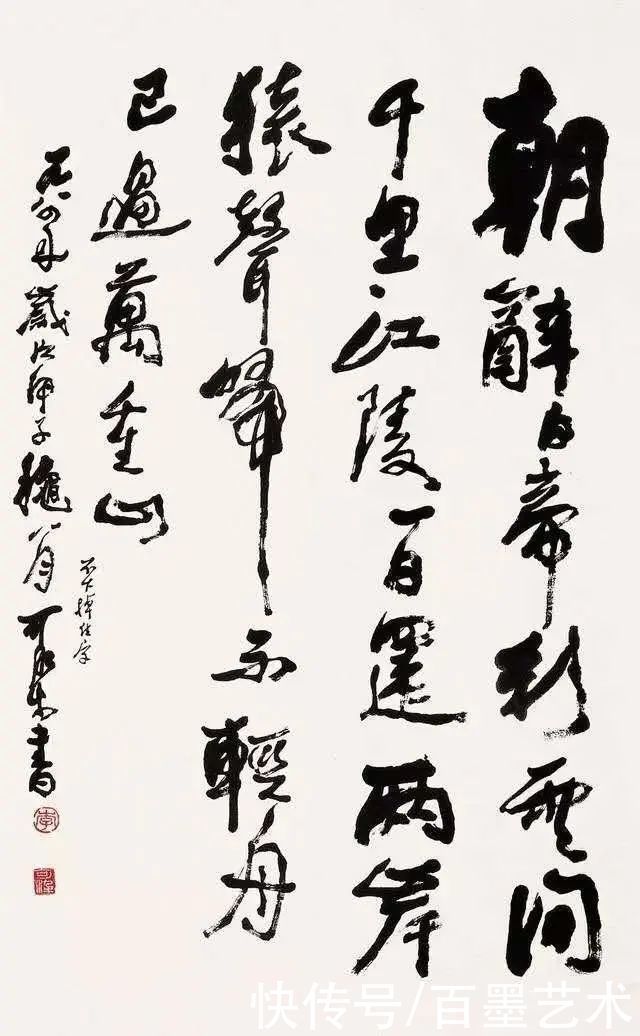 朝辭白帝彩雲間
千里江陵一日還兩岸
猿聲啼不輕舟
已過萬重山
不下掉住字
一九八四年歲次甲子龝八月可染書
李
可染
快传号/百墨艺术